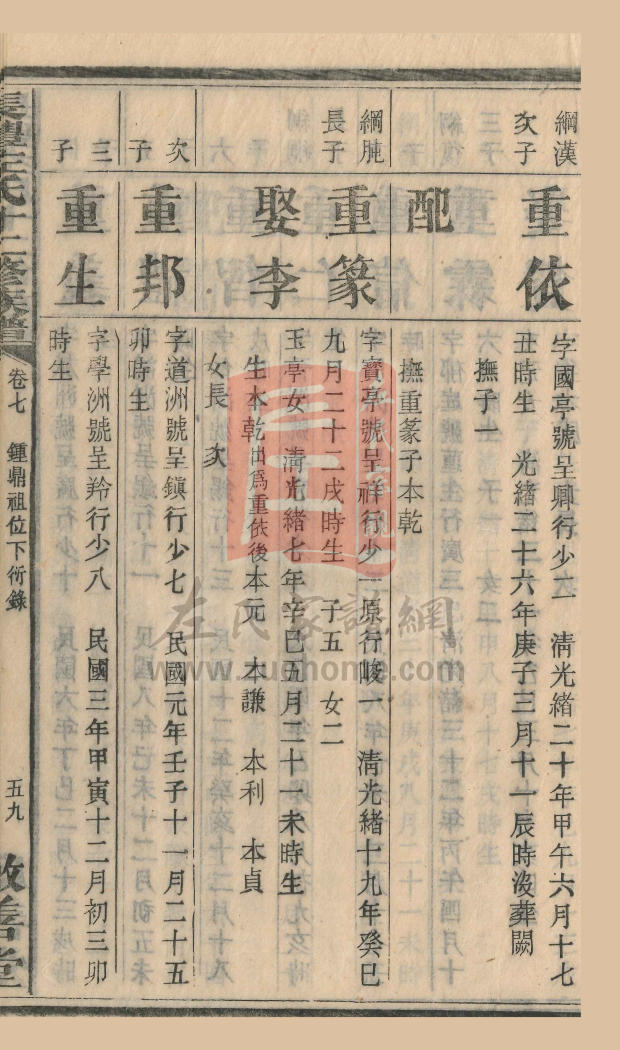 綱漢
次子
重依
字國亭號呈卿行少六 清光緒二十年甲午六月十七
丑時生 光緒二十六年庚子三月十一辰時沒葬闕
撫子一
配
撫重篆子本乾
綱脁
長子
重篆
字寶亭號呈祥行少一原行峻一 清光緒十九年癸巳
九月二十二戌時生 子五 女二
娶李
玉亭女 清光緒七年辛巳五月二十一未時生
生本乾出爲重依後本元 本謙 本利 本貞
女長 次
次
子
重邦
字道洲號呈鎮行少七 民國元年壬子十一月二十五
卯時生
三
子
重生
字學洲號呈羚行少八 民國三年甲寅十二月初三卯
時生
長豐左氏十二修族譜
卷七 鍾鼎祖位下衍錄
五九
敦善堂
左氏家譜網